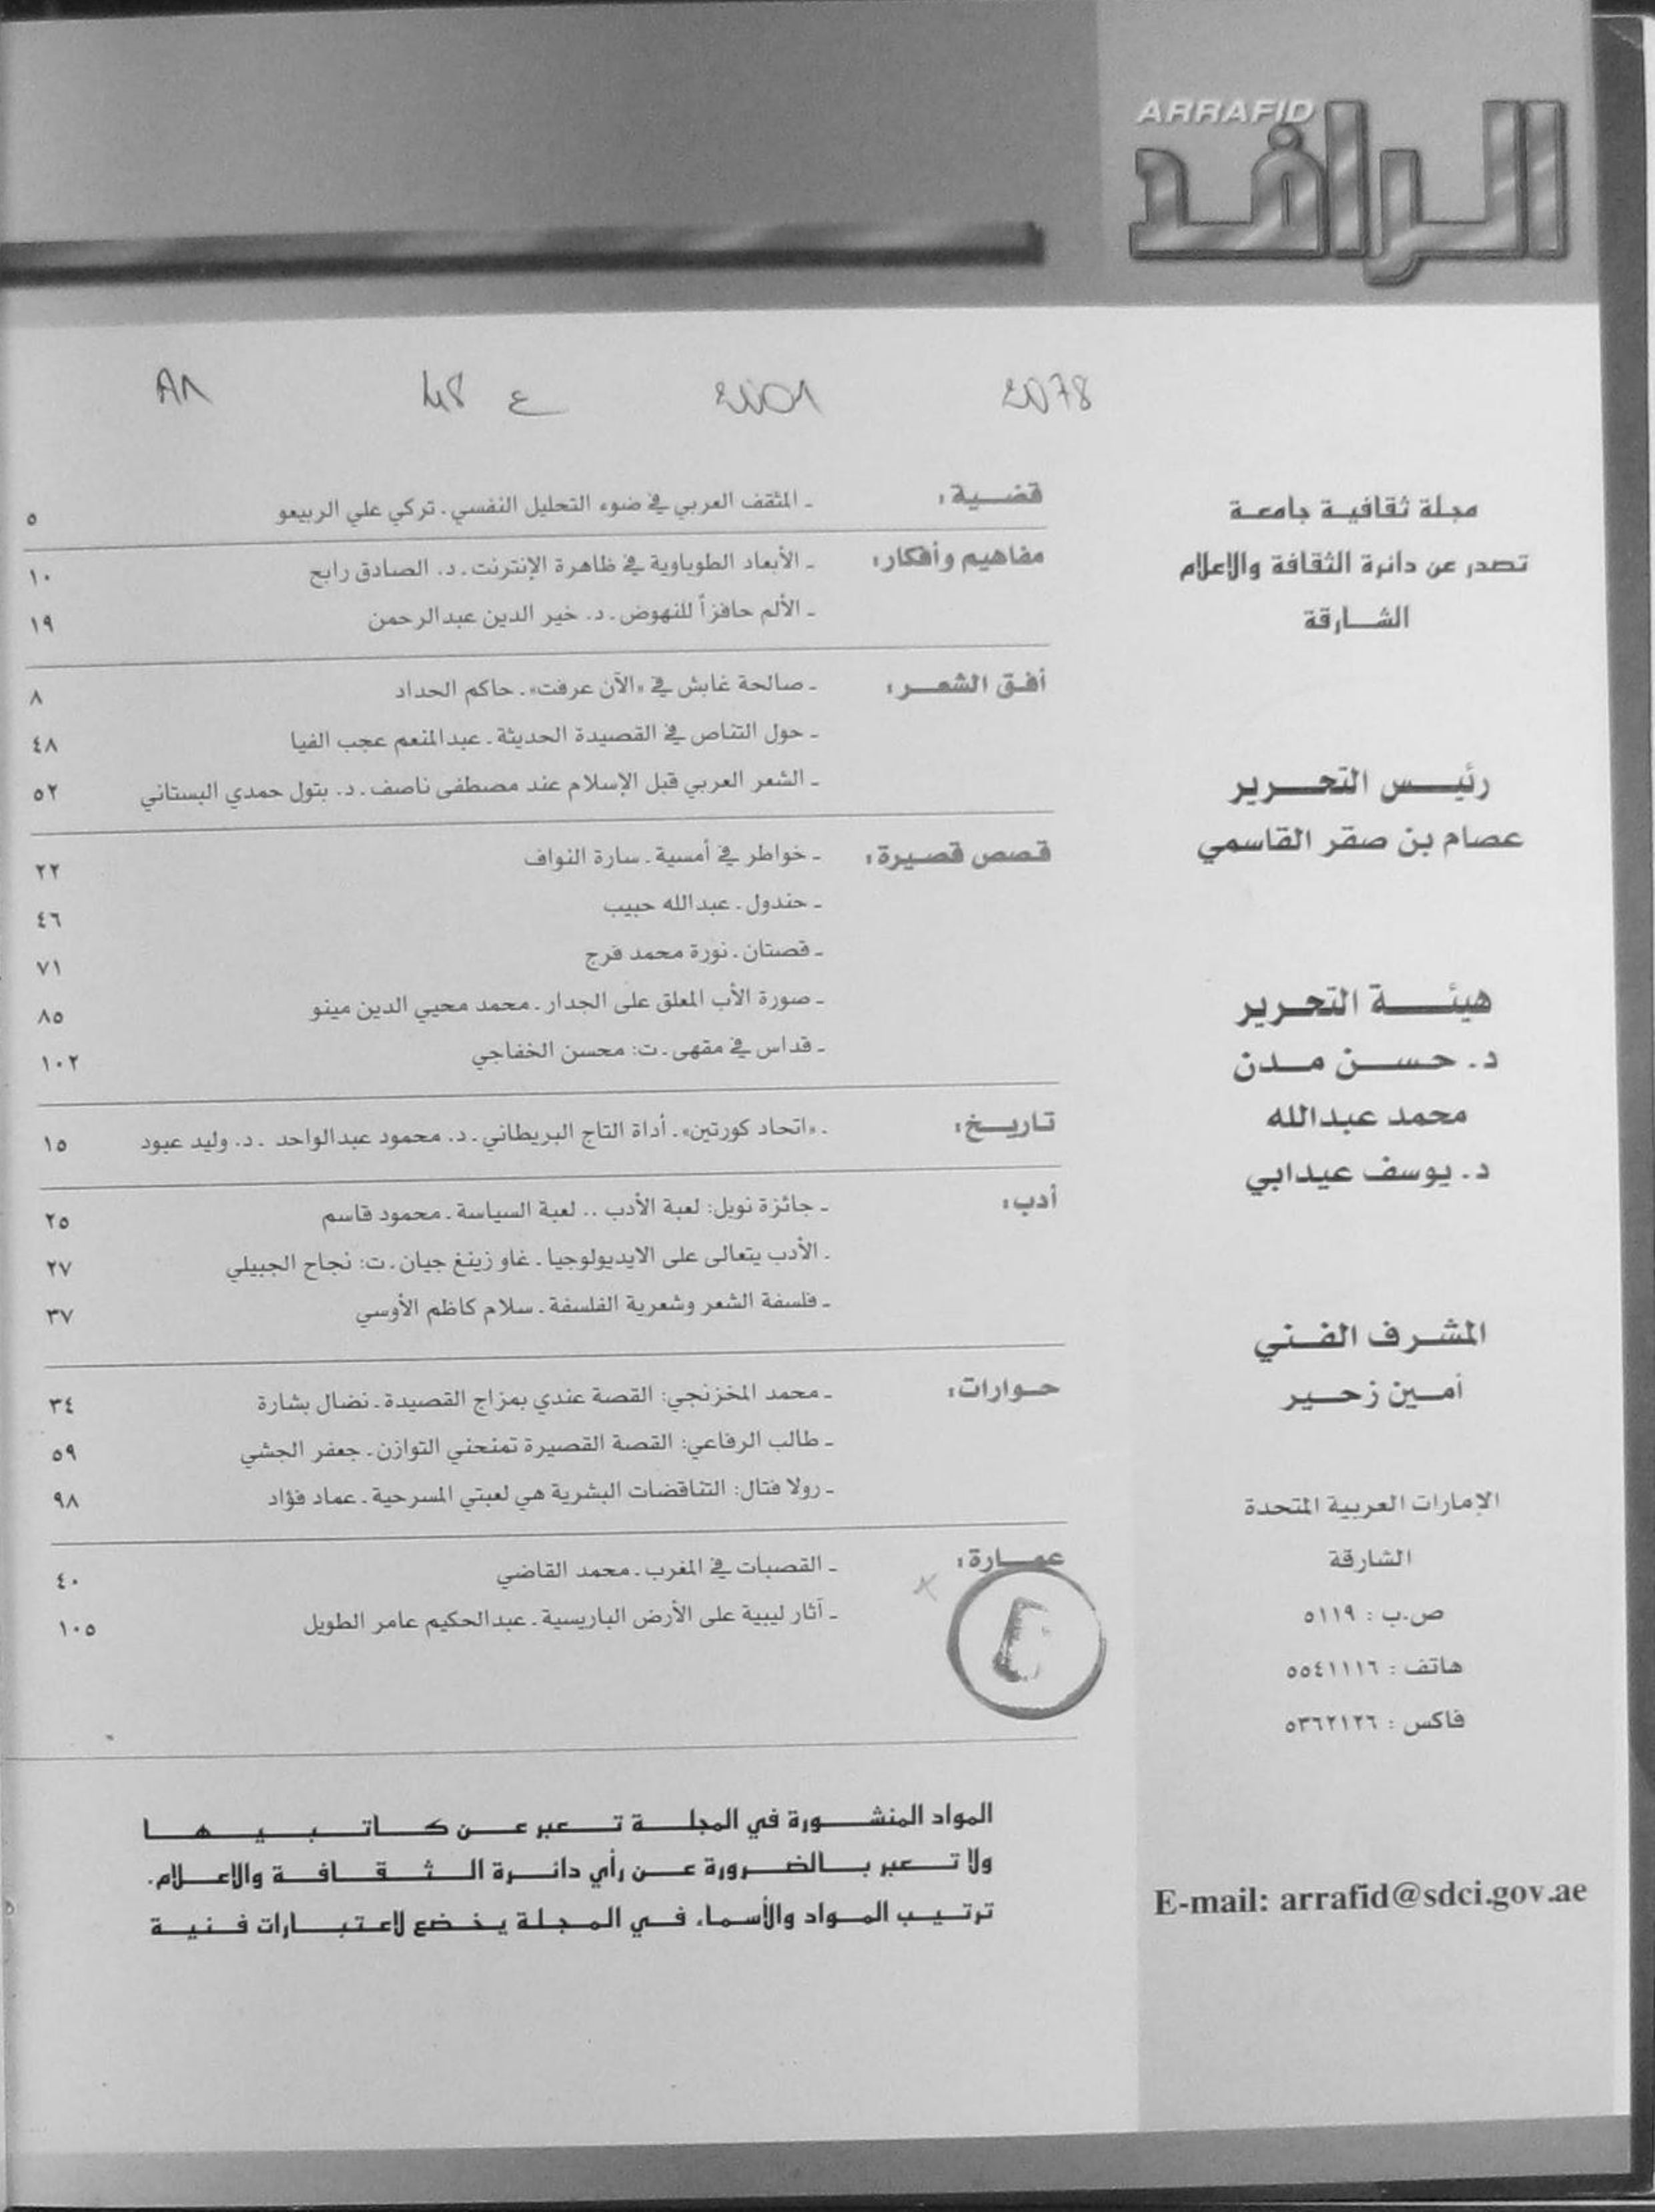 ARRAFID
الرافد
2078
2001
ع 48
مجلة ثقافية جامعة
تصدر عن دائرة الثقافة والإعلام
الشارقة
رئيس التحرير
عصام بن صقر القاسمي
هيئة التحرير
د. حسن مدن
محمد عبدالله
د. يوسف عيدابي
المشرف الفني
أمين زحير
الإمارات العربية المتحدة
الشارقة
ص.ب : ٥١١٩
هاتف : ٥٥٤١١١٦
فاكس : ٥٣٦٢١٢٦
E-mail: arrafid@sdci.gov.ae
قضية: ـ المثقف العربي في ضوء التحليل النفسي. تركي علي الربيعو ٥
مفاهيم وأفكار: ـ الأبعاد الطوباوية في ظاهرة الإنترنت. د. الصادق رابح ١٠
ـ الألم حافزاً للنهوض. د. خير الدين عبدالرحمن ١٩
أفق الشعر: ـ صالحة غابش في «الآن عرفت». حاكم الحداد ٨
ـ حول التناص في القصيدة الحديثة. عبدالمنعم عجب الفيا ٤٨
ـ الشعر العربي قبل الإسلام عند مصطفى ناصف. د. بتول حمدي البستاني ٥٢
قصص قصيرة: ـ خواطر في أمسية. سارة النواف ٢٢
ـ حندول. عبدالله حبيب ٤٦
ـ قصتان. نورة محمد فرج ٧١
ـ صورة الأب المعلق على الجدار. محمد محيي الدين مينو ٨٥
ـ قداس في مقهى. ت: محسن الخفاجي ١٠٢
تاريخ: ـ «اتحاد كورتين». أداة التاج البريطاني. د. محمود عبدالواحد . د. وليد عبود ١٥
أدب: ـ جائزة نوبل: لعبة الأدب .. لعبة السياسة. محمود قاسم ٢٥
ـ الأدب يتعالى على الايديولوجيا. غاو زينغ جيان. ت: نجاح الجبيلي ٢٧
ـ فلسفة الشعر وشعرية الفلسفة. سلام كاظم الأوسي ٣٧
حوارات: ـ محمد المخزنجي: القصة عندي بمزاج القصيدة. نضال بشارة ٣٤
ـ طالب الرفاعي: القصة القصيرة تمنحني التوازن. جعفر الجشي ٥٩
ـ رولا فتال: التناقضات البشرية هي لعبتي المسرحية. عماد فؤاد ٩٨
عمارة: ـ القصبات في المغرب. محمد القاضي ٤٠
ـ آثار ليبية على الأرض الباريسية. عبدالحكيم عامر الطويل ١٠٥
المواد المنشورة في المجلة تعبر عن كاتبيها
ولا تعبر بالضرورة عن رأي دائرة الثقافة والإعلام.
ترتيب المواد والأسماء في المجلة يخضع لاعتبارات فنية